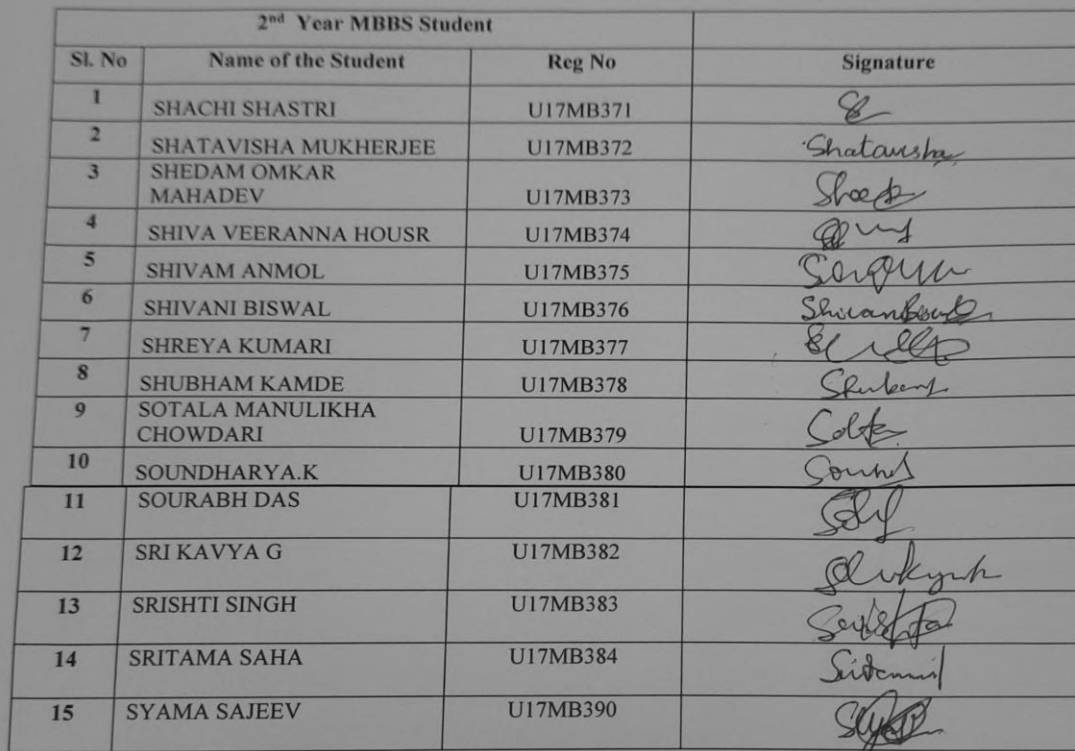 2nd Year MBBS Student
Sl. No Name of the Student Reg No Signature
1 SHACHI SHASTRI U17MB371
2 SHATAVISHA MUKHERJEE U17MB372 Shatavisha
3 SHEDAM OMKAR
MAHADEV U17MB373
4 SHIVA VEERANNA HOUSR U17MB374
5 SHIVAM ANMOL U17MB375
6 SHIVANI BISWAL U17MB376
7 SHREYA KUMARI U17MB377
8 SHUBHAM KAMDE U17MB378
9 SOTALA MANULIKHA
CHOWDARI U17MB379
10 SOUNDHARYA.K U17MB380
11 SOURABH DAS U17MB381
12 SRI KAVYA G U17MB382
13 SRISHTI SINGH U17MB383
14 SRITAMA SAHA U17MB384
15 SYAMA SAJEEV U17MB390